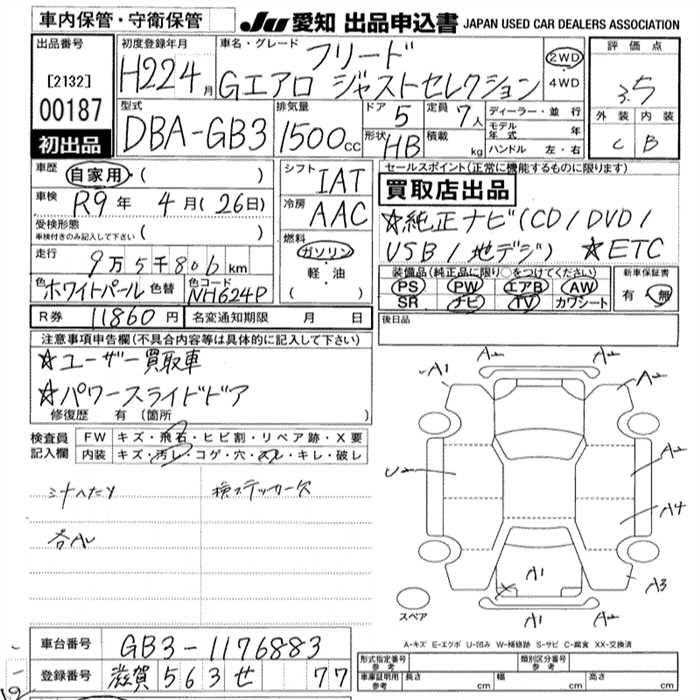 車内保管・守衛保管
JU 愛知 出品申込書 JAPAN USED CAR DEALERS ASSOCIATION
出品番号
[2132]
00187
初出品
初度登録年月
H22 4月
車名・グレード
フリード
Gエアロ ジャストセレクション
2WD
4WD
評価点
3.5
外装 内装
C B
型式
DBA-GB3
排気量
1500cc
ドア 5
形状 HB
定員 7人
積載 kg
ディーラー・並行
モデル年式 年
ハンドル 左・右
車歴 自家用・( )
車検 R9年 4月(26日)
受検形態
車検付きのみ記入して下さい ( )
走行 9万5千806km
色 ホワイトパール 色替 色コード NH624P
シフト IAT
冷房 AAC
燃料
ガソリン
軽・油
( )
セールスポイント(正常に機能するものに限ります)
買取店出品
☆純正ナビ(CD/DVD/
USB/地デジ) ☆ETC
装備品(純正品に限り○をつけてください)
PS PW エアB AW
SR ナビ TV カワシート
新車保証書
有・無
R券 11860円 名変通知期限 月 日
後日品
注意事項申告欄(不具合内容等は具体的に記入して下さい)
☆ユーザー買取車
☆パワースライドドア
修復歴 有(箇所 )
検査員記入欄
FW キズ・飛石・ヒビ割・リペア跡・X要
内装 キズ・汚レ・コゲ・穴・スレ・キレ・破レ
検ステッカー欠
A1 A2 A2
A2
U2
A2
A4
A1
A3
A1 A2
スペア
A-キズ E-エクボ U-凹み W-補修跡 S-サビ C-腐食 XX-交換済
車台番号 GB3-1176883
登録番号 滋賀 563 せ 77
形式指定番号 参考
類別区分番号 参考
車庫証明用 参考 長さ cm 幅 cm 高さ cm